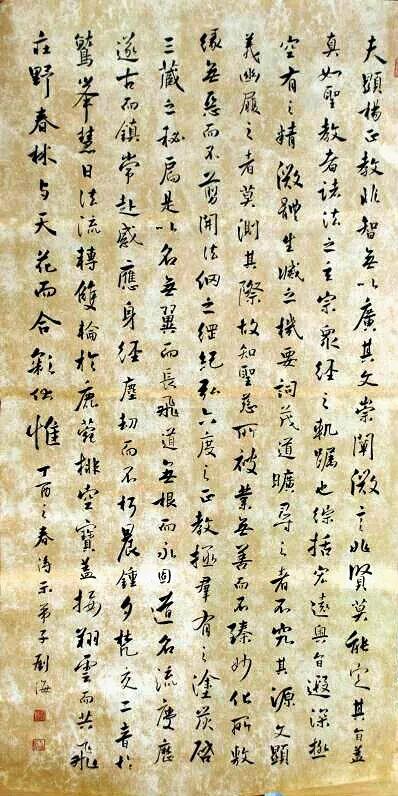 夫顯揚正教非智無以廣其文崇闡微言非賢莫能定其旨蓋
真如聖教者諸法之玄宗眾經之軌躅也綜括宏遠奧旨遐深極
空有之精微體生滅之機要詞茂道曠尋之者不究其源文顯
義幽履之者莫測其際故知聖慈所被業無善而不臻妙化所敷
緣無惡而不剪開法網之綱紀弘六度之正教拯羣有之塗炭啓
三藏之秘扃是以名無翼而長飛道無根而永固道名流慶歷
遂古而鎮常赴感應身經塵劫而不朽晨鍾夕梵交二音於
鷲峯慧日法流轉雙輪於鹿菀排空寶蓋接翔雲而共飛
莊野春林与天花而合彩伏惟 丁酉之春 弟子劉海